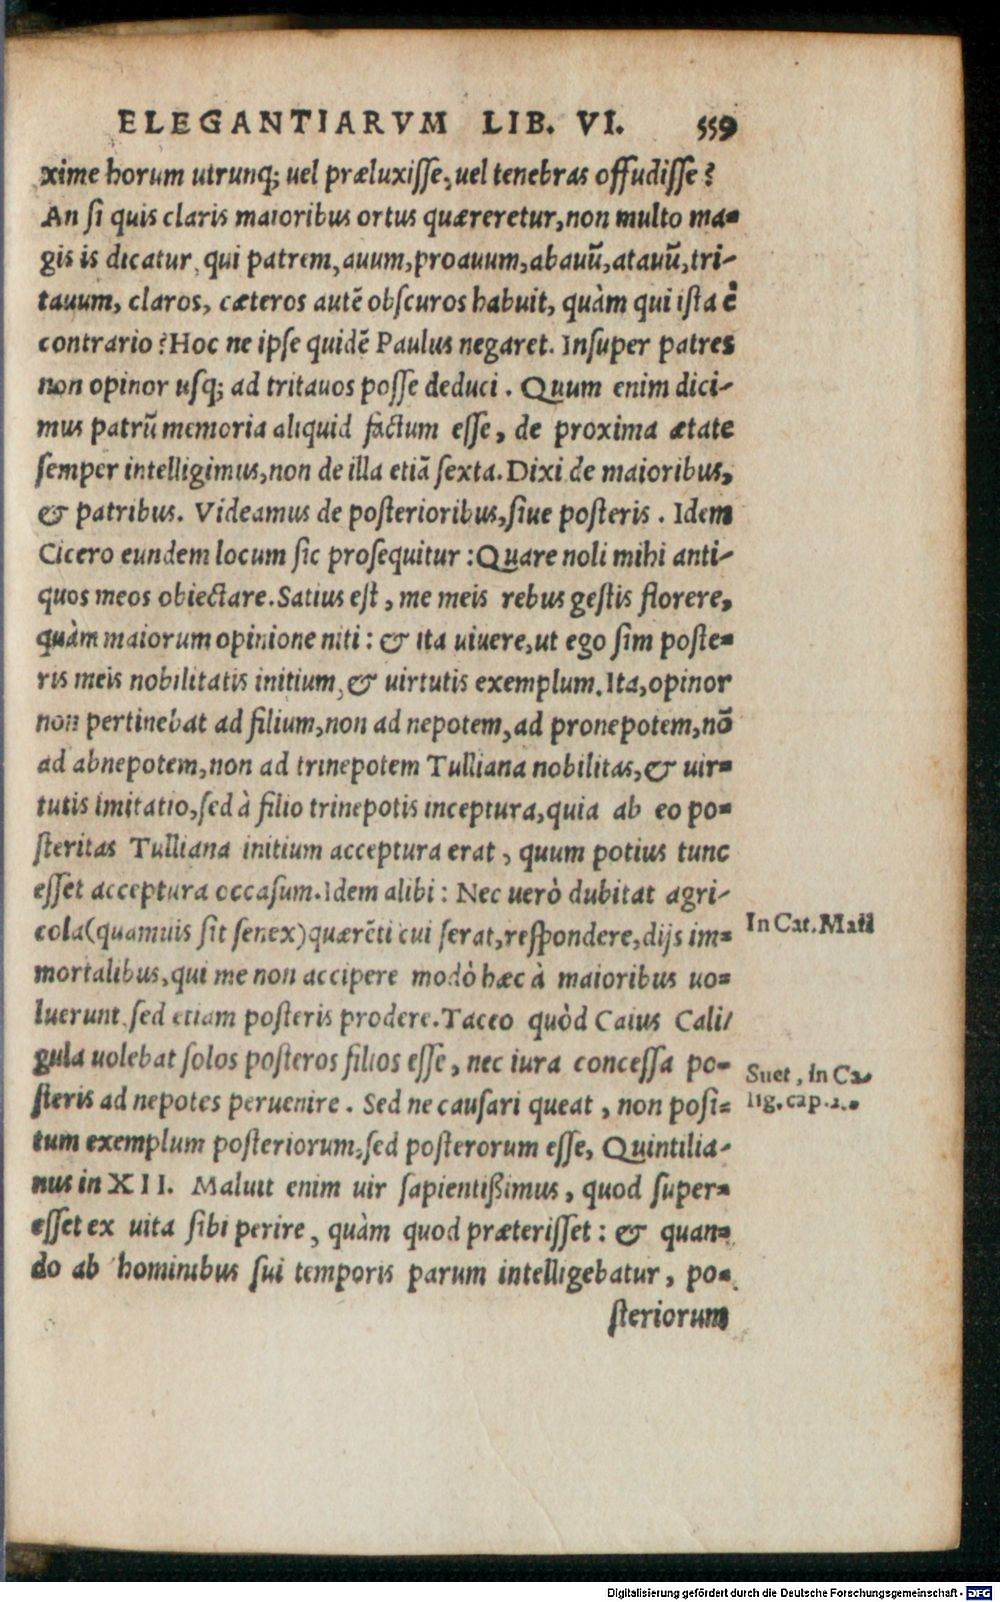 ELEGANTIARVM LIB. VI. 559
xime horum utrunq; uel præluxisse, uel tenebras offudisse?
An si quis claris maioribus ortus quæreretur, non multo ma-
gis is dicatur, qui patrem, auum, proauum, abauũ, atauũ, tri-
tauum, claros, cæteros autẽ obscuros habuit, quàm qui ista è
contrario? Hoc ne ipse quidẽ Paulus negaret. Insuper patres
non opinor usq; ad tritauos posse deduci. Quum enim dici-
mus patrũ memoria aliquid factum esse, de proxima ætate
semper intelligimus, non de illa etiã sexta. Dixi de maioribus,
& patribus. Videamus de posterioribus, siue posteris. Idem
Cicero eundem locum sic prosequitur: Quare noli mihi anti-
quos meos obiectare. Satius est, me meis rebus gestis florere,
quàm maiorum opinione niti: & ita uiuere, ut ego sim poste-
ris meis nobilitatis initium, & uirtutis exemplum. Ita, opinor
non pertinebat ad filium, non ad nepotem, ad pronepotem, nõ
ad abnepotem, non ad trinepotem Tulliana nobilitas, & uir-
tutis imitatio, sed à filio trinepotis inceptura, quia ab eo po-
steritas Tulliana initium acceptura erat, quum potius tunc
esset acceptura occasum. Idem alibi: Nec uerò dubitat agri-
cola (quamuis sit senex) quærẽti cui serat, respondere, dijs im-
mortalibus, qui me non accipere modò hæc à maioribus uo-
luerunt, sed etiam posteris prodere. Taceo quòd Caius Cali/
gula uolebat solos posteros filios esse, nec iura concessa po-
steris ad nepotes peruenire. Sed ne causari queat, non posi-
tum exemplum posteriorum, sed posterorum esse, Quintilia-
nus in XII. Maluit enim uir sapientißimus, quod super-
esset ex uita sibi perire, quàm quod præterisset: & quan-
do ab hominibus sui temporis parum intelligebatur, po-
steriorum
In Cat. Mail
Suet, in Ca-
lig. cap. 1.
Digitalisierung gefördert durch die Deutsche Forschungsgemeinschaft - DFG